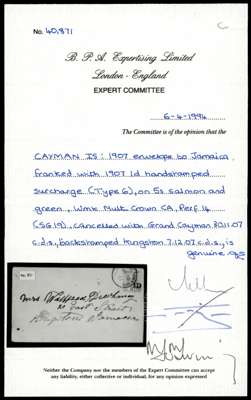 No. 40,871
B. P. A. Expertising Limited
London - England
EXPERT COMMITTEE
6-4-1994
The Committee is of the opinion that the
CAYMAN IS: 1907 envelope to Jamaica,
franked with 1907 1d handstamped
surcharge (Type 6), on 5s salmon and
green, Wmk Mult Crown CA, Perf. 14
(SG19), cancelled with Grand Cayman 30.11.07
c.d.s., backstamped Kingston 7.12.07 c.d.s., is
genuine
Mrs
East Street
Kingston Jamaica
Neither the Company nor the members of the Expert Committee can accept
any liability, either collective or individual, for any opinion expressed